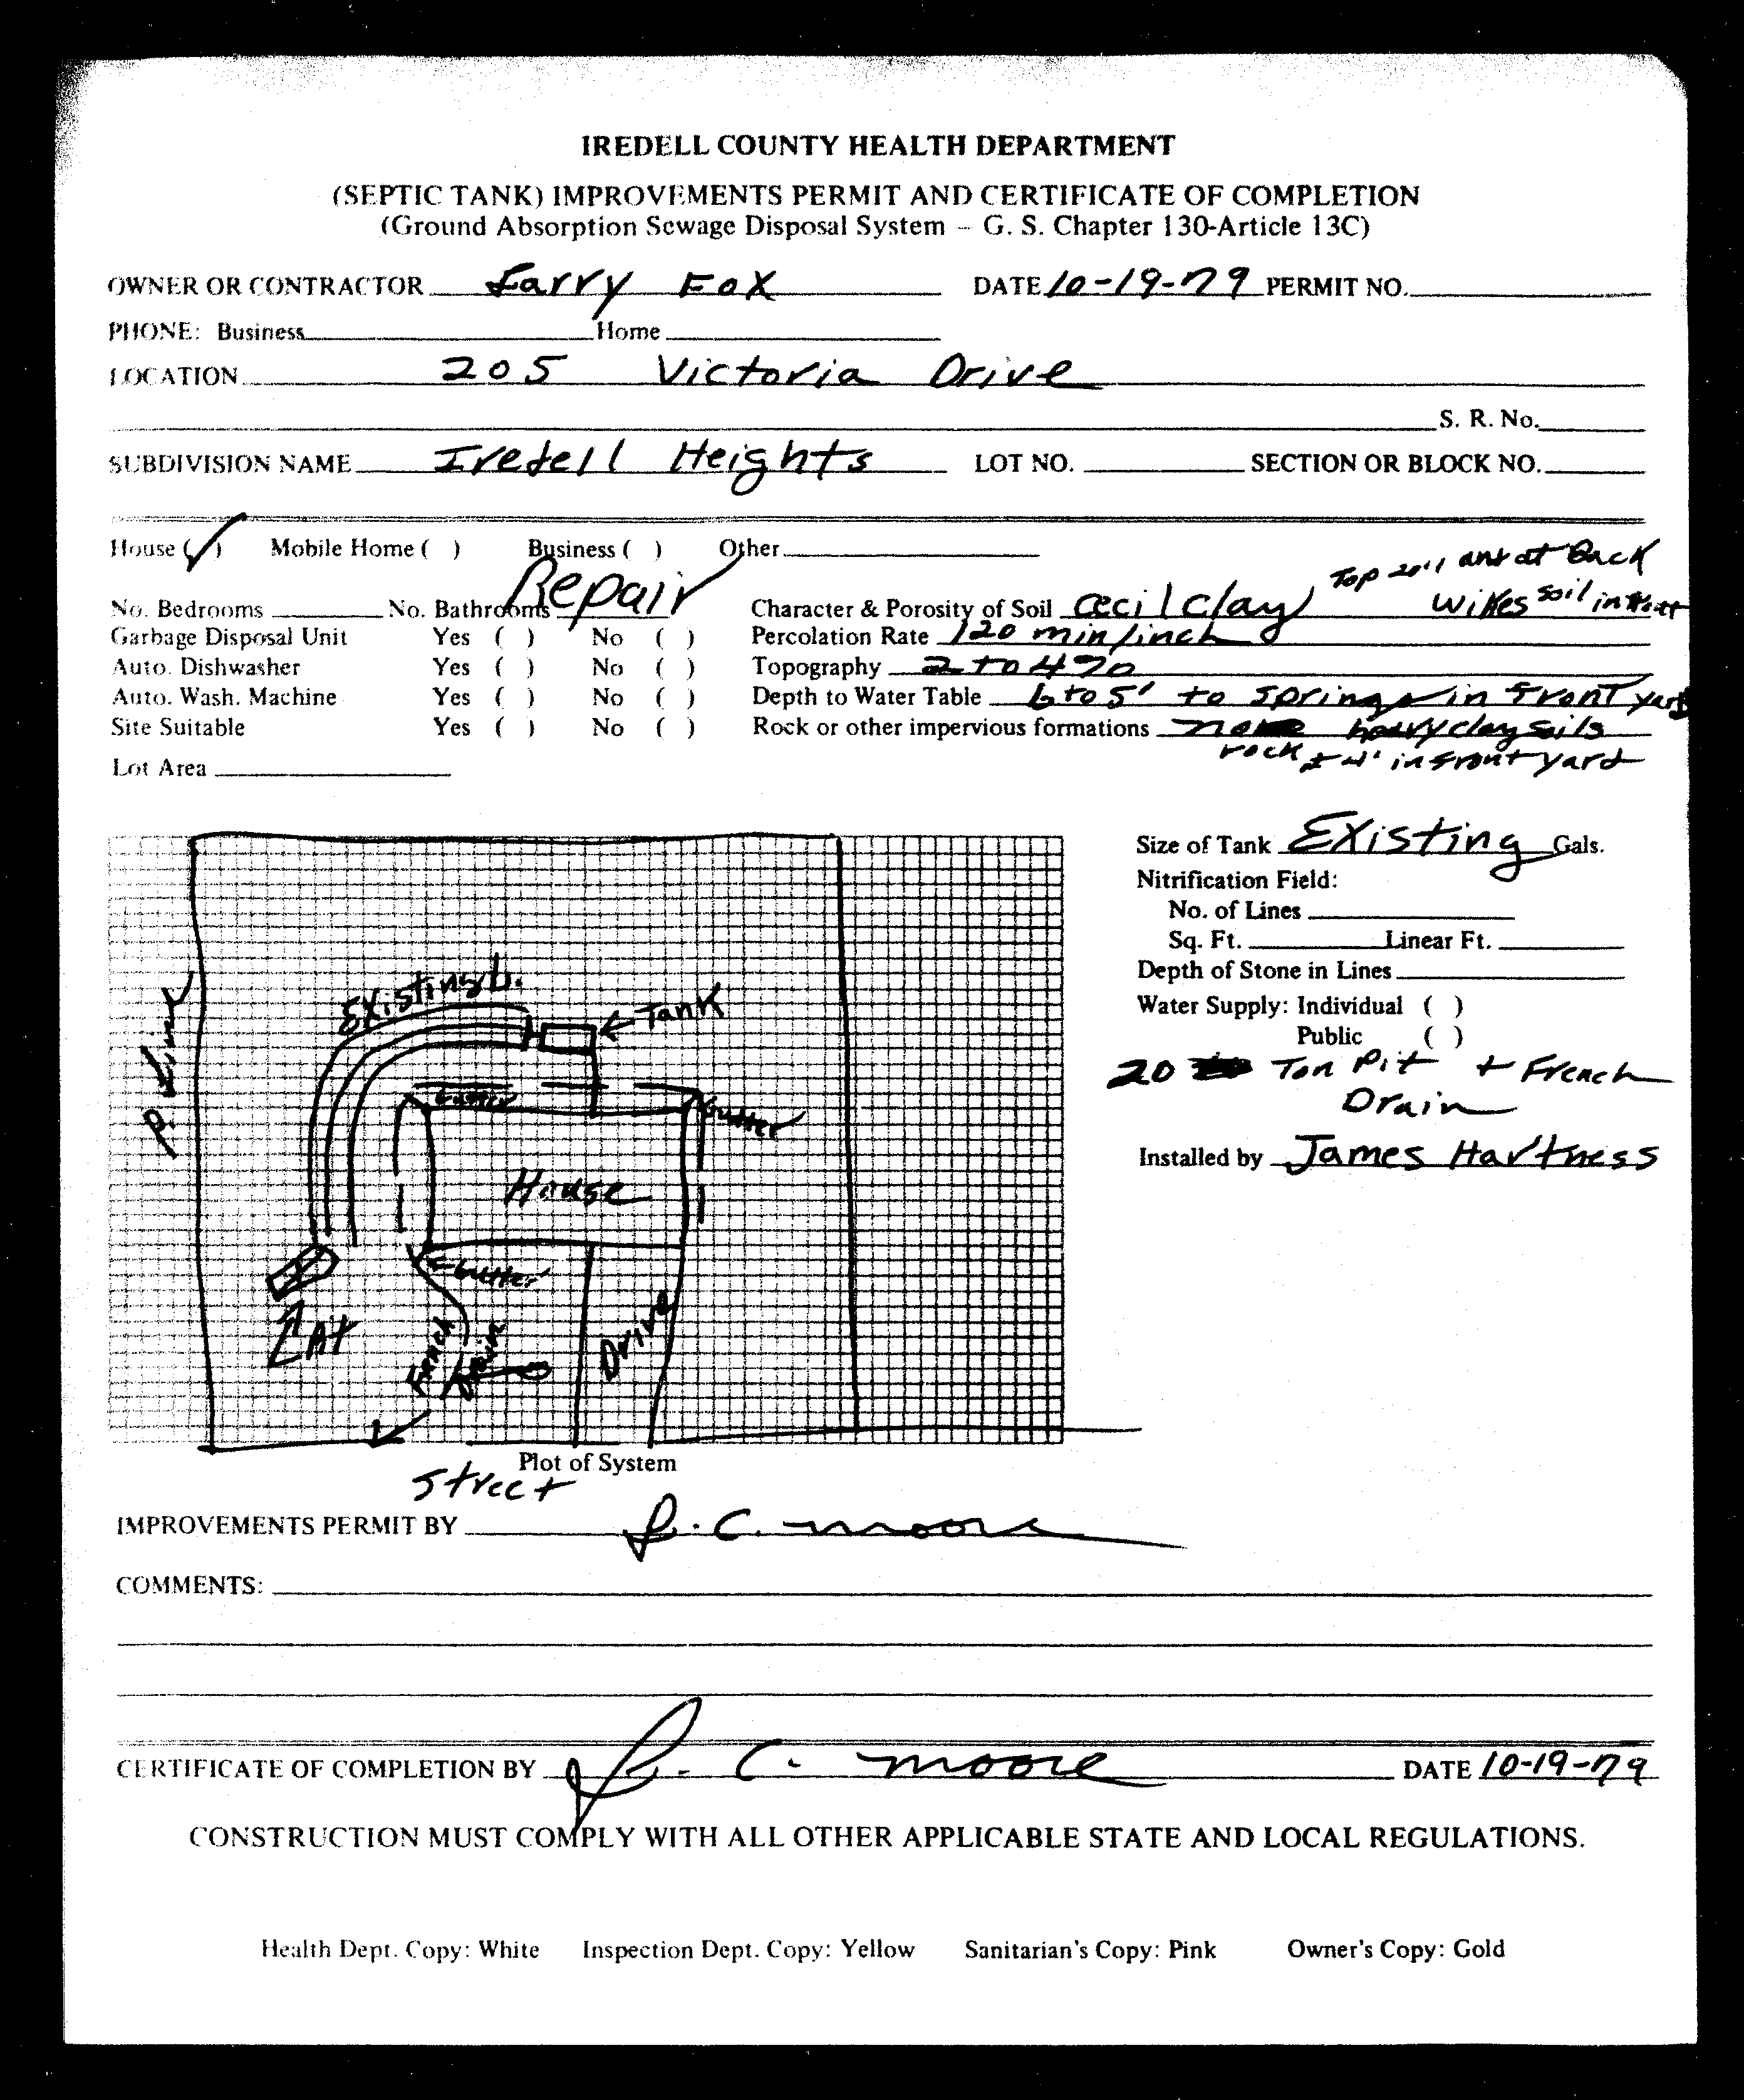 IREDELL COUNTY HEALTH DEPARTMENT
(SEPTIC TANK) IMPROVEMENTS PERMIT AND CERTIFICATE OF COMPLETION
(Ground Absorption Sewage Disposal System – G. S. Chapter 130-Article 13C)
OWNER OR CONTRACTOR Larry Fox DATE 10-19-79 PERMIT NO.
PHONE: Business Home
LOCATION 205 Victoria Drive
S. R. No.
SUBDIVISION NAME Iredell Heights LOT NO. SECTION OR BLOCK NO.
House (✓) Mobile Home ( ) Business ( ) Other
Repair
Top 20" and at Back
No. Bedrooms No. Bathrooms Character & Porosity of Soil Cecil Clay Wilkes soil in front
Garbage Disposal Unit Yes ( ) No ( ) Percolation Rate 120 min/inch
Auto. Dishwasher Yes ( ) No ( ) Topography 2 to 4%
Auto. Wash. Machine Yes ( ) No ( ) Depth to Water Table 6 to 5' to springs in front yard
Site Suitable Yes ( ) No ( ) Rock or other impervious formations none heavy clay soils
rock ± 4' in front yard
Lot Area
Size of Tank Existing Gals.
Nitrification Field:
No. of Lines
Sq. Ft. Linear Ft.
Depth of Stone in Lines
Water Supply: Individual ( )
Public ( )
20 Ton Pit + French
Drain
Installed by James Hartness
Existing L.
Tank
P. Line
Gutter
Gutter
House
Gutter
French
Drain
Drive
Plot of System
Street
IMPROVEMENTS PERMIT BY L. C. Moore
COMMENTS:
CERTIFICATE OF COMPLETION BY L. C. Moore DATE 10-19-79
CONSTRUCTION MUST COMPLY WITH ALL OTHER APPLICABLE STATE AND LOCAL REGULATIONS.
Health Dept. Copy: White Inspection Dept. Copy: Yellow Sanitarian's Copy: Pink Owner's Copy: Gold